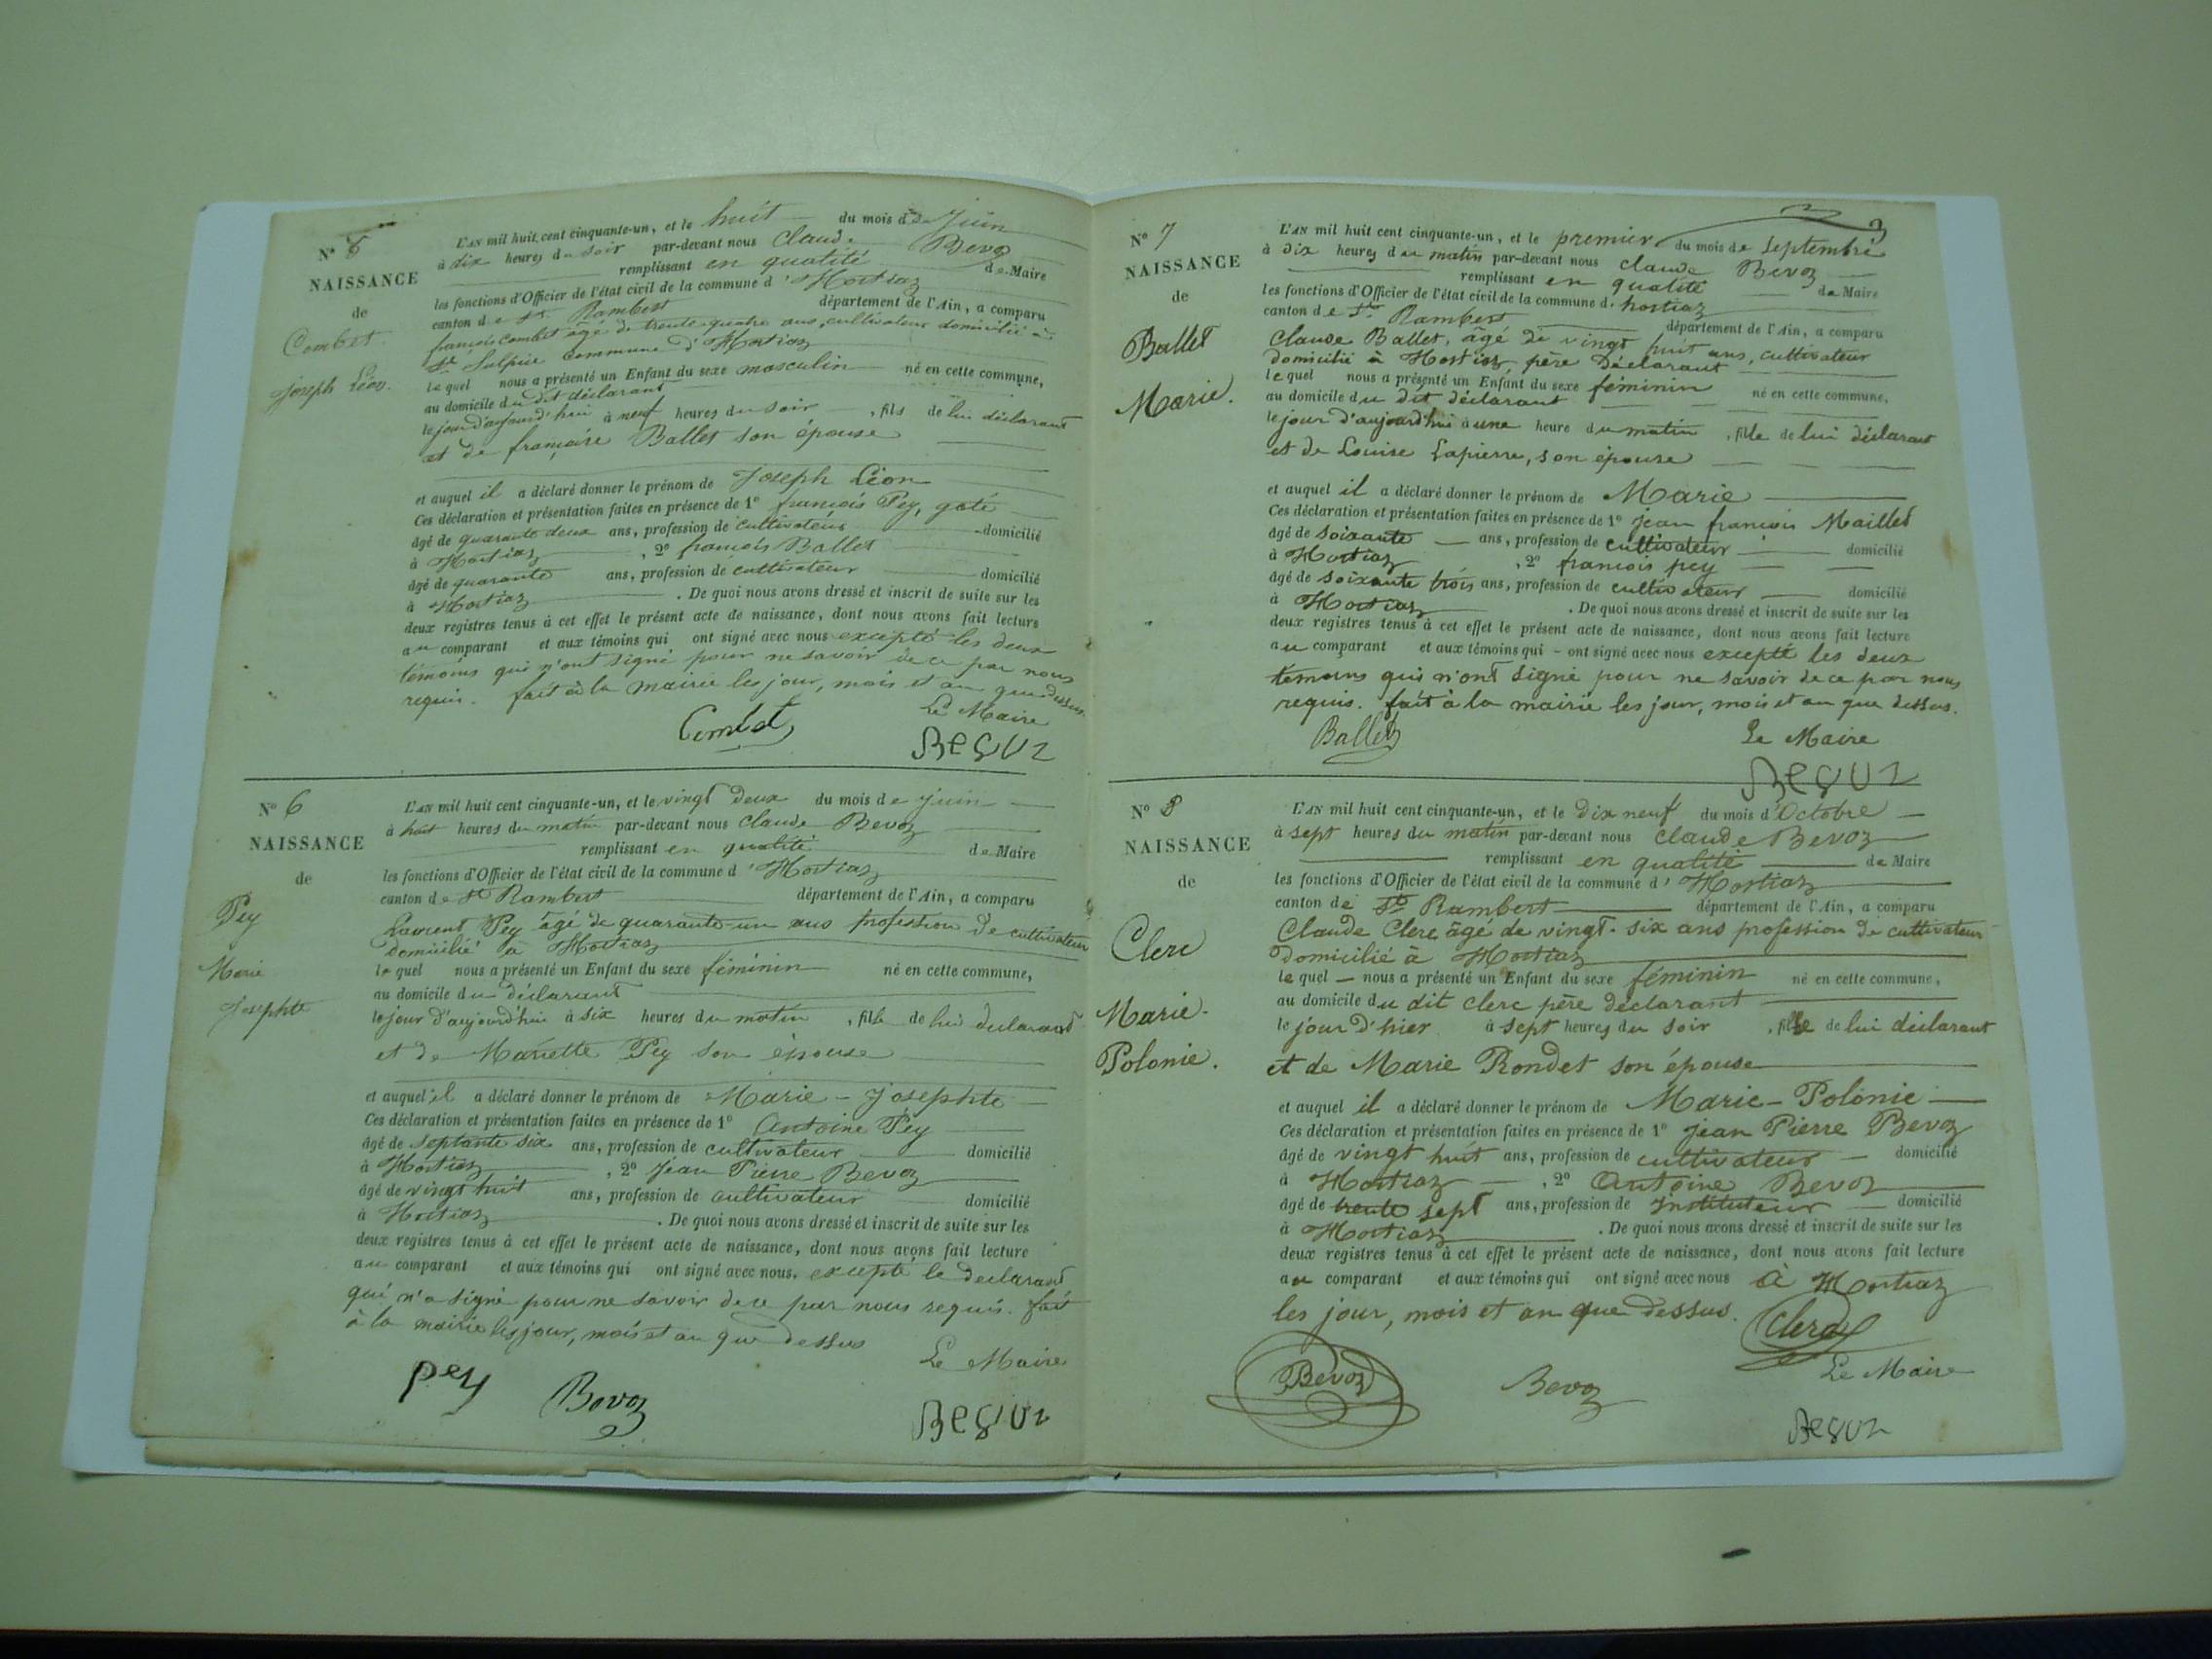 N° 5
NAISSANCE
de
Combet
Joseph Léon.
L'AN mil huit cent cinquante-un, et le huit du mois de Juin
à dix heures du soir par-devant nous Claude Bevoz
remplissant en qualité de Maire
les fonctions d'Officier de l'état civil de la commune d'Hostiaz
canton de St Rambert département de l'Ain, a comparu
françois Combet âgé de trente quatre ans, cultivateur domicilié à
St Sulpice commune d'Hostiaz
lequel nous a présenté un Enfant du sexe masculin né en cette commune,
au domicile du dit déclarant
le jour d'aujourd'hui à neuf heures du soir, fils de lui déclarant
et de françoise Ballet son épouse
et auquel il a déclaré donner le prénom de Joseph Léon
Ces déclaration et présentation faites en présence de 1° françois Pey,
âgé de quarante deux ans, profession de cultivateur domicilié
à Hostiaz, 2° françois Ballet
âgé de quarante ans, profession de cultivateur domicilié
à Hostiaz. De quoi nous avons dressé et inscrit de suite sur les
deux registres tenus à cet effet le présent acte de naissance, dont nous avons fait lecture
au comparant et aux témoins qui ont signé avec nous excepté les deux
témoins qui n'ont signé pour ne savoir de ce par nous
requis. fait à la mairie les jour, mois et an que dessus.
Le Maire
Combet
Bevoz
N° 6
NAISSANCE
de
Pey
Marie
Josephte
L'AN mil huit cent cinquante-un, et le vingt deux du mois de Juin
à huit heures du matin par-devant nous Claude Bevoz
remplissant en qualité de Maire
les fonctions d'Officier de l'état civil de la commune d'Hostiaz
canton de St Rambert département de l'Ain, a comparu
Laurent Pey âgé de quarante-un ans profession de cultivateur
domicilié à Hostiaz
lequel nous a présenté un Enfant du sexe féminin né en cette commune,
au domicile du déclarant
le jour d'aujourd'hui à six heures du matin, fille de lui déclarant
et de Mariette Pey son épouse
et auquel il a déclaré donner le prénom de Marie - Josephte
Ces déclaration et présentation faites en présence de 1° Antoine Pey
âgé de septante six ans, profession de cultivateur domicilié
à Hostiaz, 2° Jean Pierre Bevoz
âgé de vingt huit ans, profession de cultivateur domicilié
à Hostiaz. De quoi nous avons dressé et inscrit de suite sur les
deux registres tenus à cet effet le présent acte de naissance, dont nous avons fait lecture
au comparant et aux témoins qui ont signé avec nous, excepté le déclarant
qui n'a signé pour ne savoir de ce par nous requis. fait
à la mairie les jour, mois et an que dessus
Le Maire
Pey
Bevoz
Bevoz
N° 7
NAISSANCE
de
Ballet
Marie.
3
L'AN mil huit cent cinquante-un, et le premier du mois de Septembre
à dix heures du matin par-devant nous Claude Bevoz
remplissant en qualité de Maire
les fonctions d'Officier de l'état civil de la commune d. hostiaz
canton de St Rambert département de l'Ain, a comparu
Claude Ballet, âgé de vingt huit ans, cultivateur
domicilié à Hostiaz, père Déclarant
lequel nous a présenté un Enfant du sexe féminin né en cette commune,
au domicile du dit déclarant
le jour d'aujourd'hui à une heure du matin, fille de lui déclarant
et de Louise Lapierre, son épouse
et auquel il a déclaré donner le prénom de Marie
Ces déclaration et présentation faites en présence de 1° jean françois Maillet
âgé de soixante ans, profession de cultivateur domicilié
à Hostiaz, 2° francois pey
âgé de soixante trois ans, profession de cultivateur domicilié
à Hostiaz. De quoi nous avons dressé et inscrit de suite sur les
deux registres tenus à cet effet le présent acte de naissance, dont nous avons fait lecture
au comparant et aux témoins qui - ont signé avec nous excepté les deux
témoins qui n'ont signé pour ne savoir de ce par nous
requis. fait à la mairie les jour, mois et an que dessus.
Ballet
Le Maire
Bevoz
N° 8
NAISSANCE
de
Clerc
Marie.
Polonie.
L'AN mil huit cent cinquante-un, et le Dix neuf du mois d'Octobre
à sept heures du matin par-devant nous Claude Bevoz
remplissant en qualité de Maire
les fonctions d'Officier de l'état civil de la commune d'Hostiaz
canton de St Rambert département de l'Ain, a comparu
Claude Clerc âgé de vingt-six ans profession de cultivateur
Domicilié à Hostiaz
lequel nous a présenté un Enfant du sexe féminin né en cette commune,
au domicile du dit Clerc père déclarant
le jour d'hier à sept heures du soir, fille de lui déclarant
et de Marie Rondet son épouse
et auquel il a déclaré donner le prénom de Marie-Polonie
Ces déclaration et présentation faites en présence de 1° Jean Pierre Bevoz
âgé de vingt huit ans, profession de cultivateur domicilié
à Hostiaz, 2° Antoine Bevoz
âgé de trente sept ans, profession de Instituteur domicilié
à Hostiaz. De quoi nous avons dressé et inscrit de suite sur les
deux registres tenus à cet effet le présent acte de naissance, dont nous avons fait lecture
au comparant et aux témoins qui ont signé avec nous à Hostiaz
les jour, mois et an que dessus.
Clerc
Le Maire
Bevoz
Bevoz
Bevoz